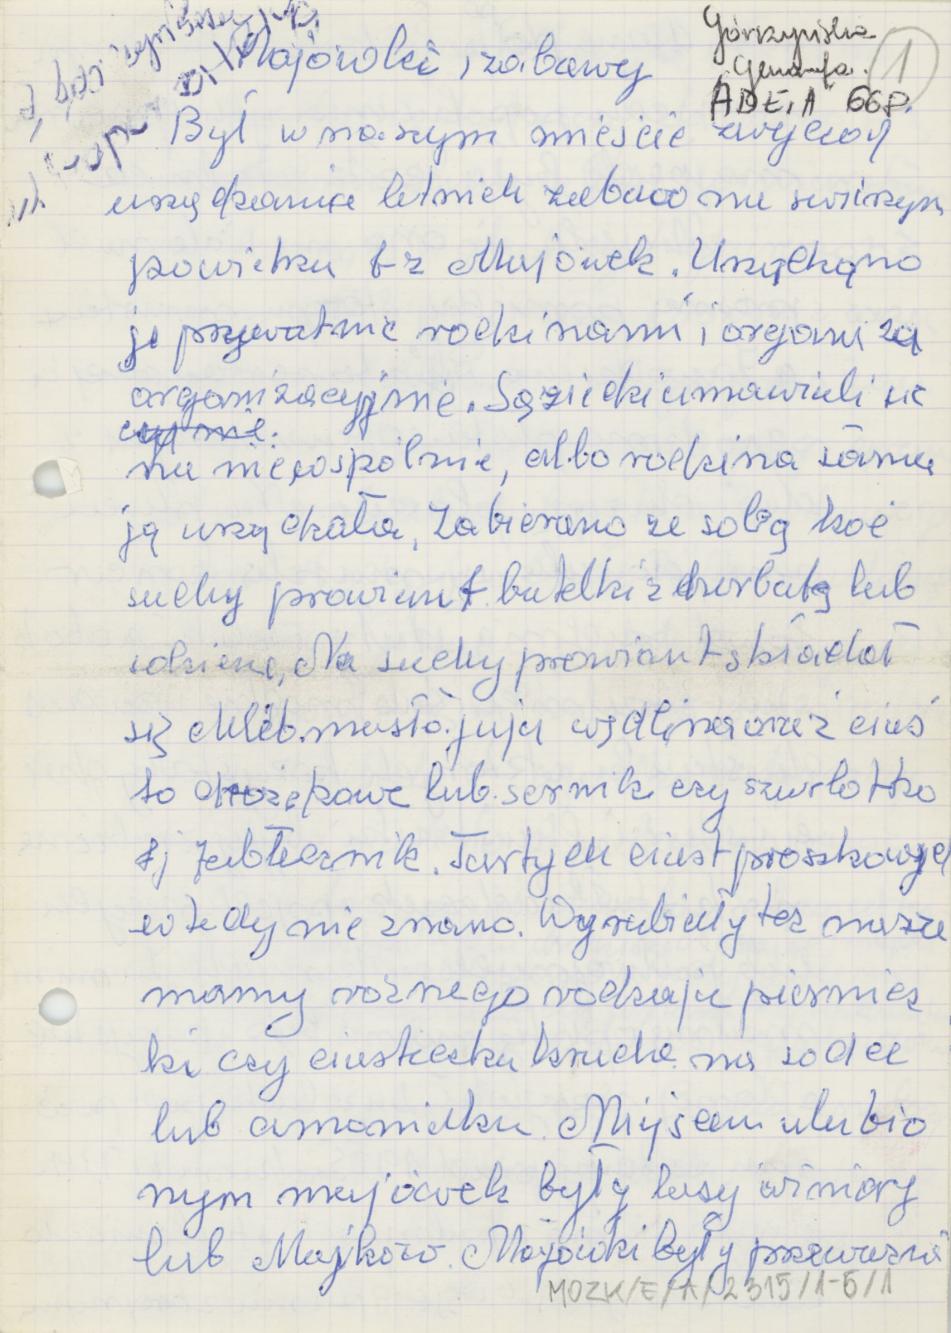 Majówki i zabawy
Górzyńska
Genowefa
1
ADE, A 668.
Był w naszym mieście zwyczaj
urządzania letnich zabaw na swirzym
powietrzu t z Majówek. Urządzano
je prywatnie rodzinami i organi za
organizacyjnie. Sąziedzi umawiali się
na nie wspólnie, albo rodzina sama
ją urządzała, Zabierano ze sobą koc
suchy prowiant butelki z herbatą lub
Na suchy prowiant składał
się chleb. masło. jaja wędlina oraz cias
to drożdżowe lub sernik czy szarlotka
tj jabłecznik. Tartych ciast proszkowych
wtedy nie znano. Wyrabiały też nasze
mamy rożnego rodzaju piernicz
ki czy ciasteczka kruche na sodce
lub amoniaku. Miejscem ulubio
nym majówek były lasy winiary
lub Majków. Majówki były przeważnie
MOZK/E/A/2315/1-5/1